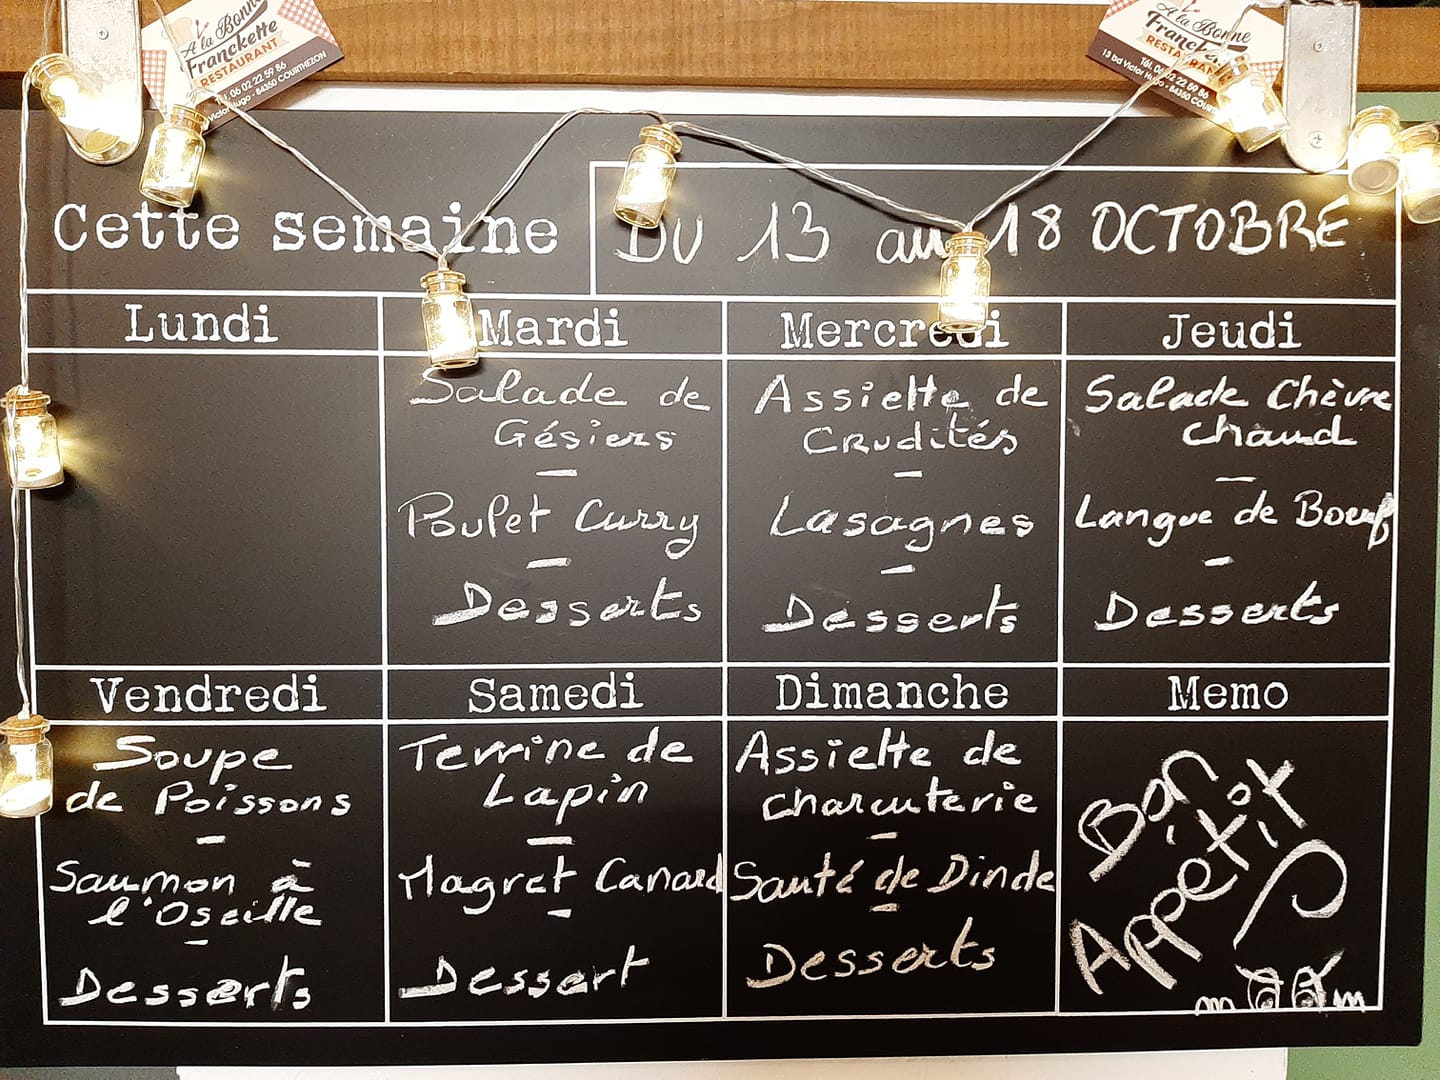 A la Bonne
Franckette
RESTAURANT
Tél. 06 02 22 59 86
Victor Hugo - 84350 COURTHEZON
A la Bonne
Franckette
RESTAURANT
Tél. 06 02 22 59 86
13 bd Victor Hugo - 84350 COURT
Cette semaine
DU 13 au 18 OCTOBRE
Lundi
Mardi
Mercredi
Jeudi
Salade de
Gésiers
—
Poulet Curry
—
Desserts
Assiette de
Crudités
—
Lasagnes
—
Desserts
Salade Chèvre
chaud
—
Langue de Boeuf
—
Desserts
Vendredi
Samedi
Dimanche
Memo
Soupe
de Poissons
—
Saumon à
l'Oseille
—
Desserts
Terrine de
Lapin
—
Magret Canard
—
Dessert
Assiette de
charcuterie
—
Sauté de Dinde
—
Desserts
Bon
Appétit